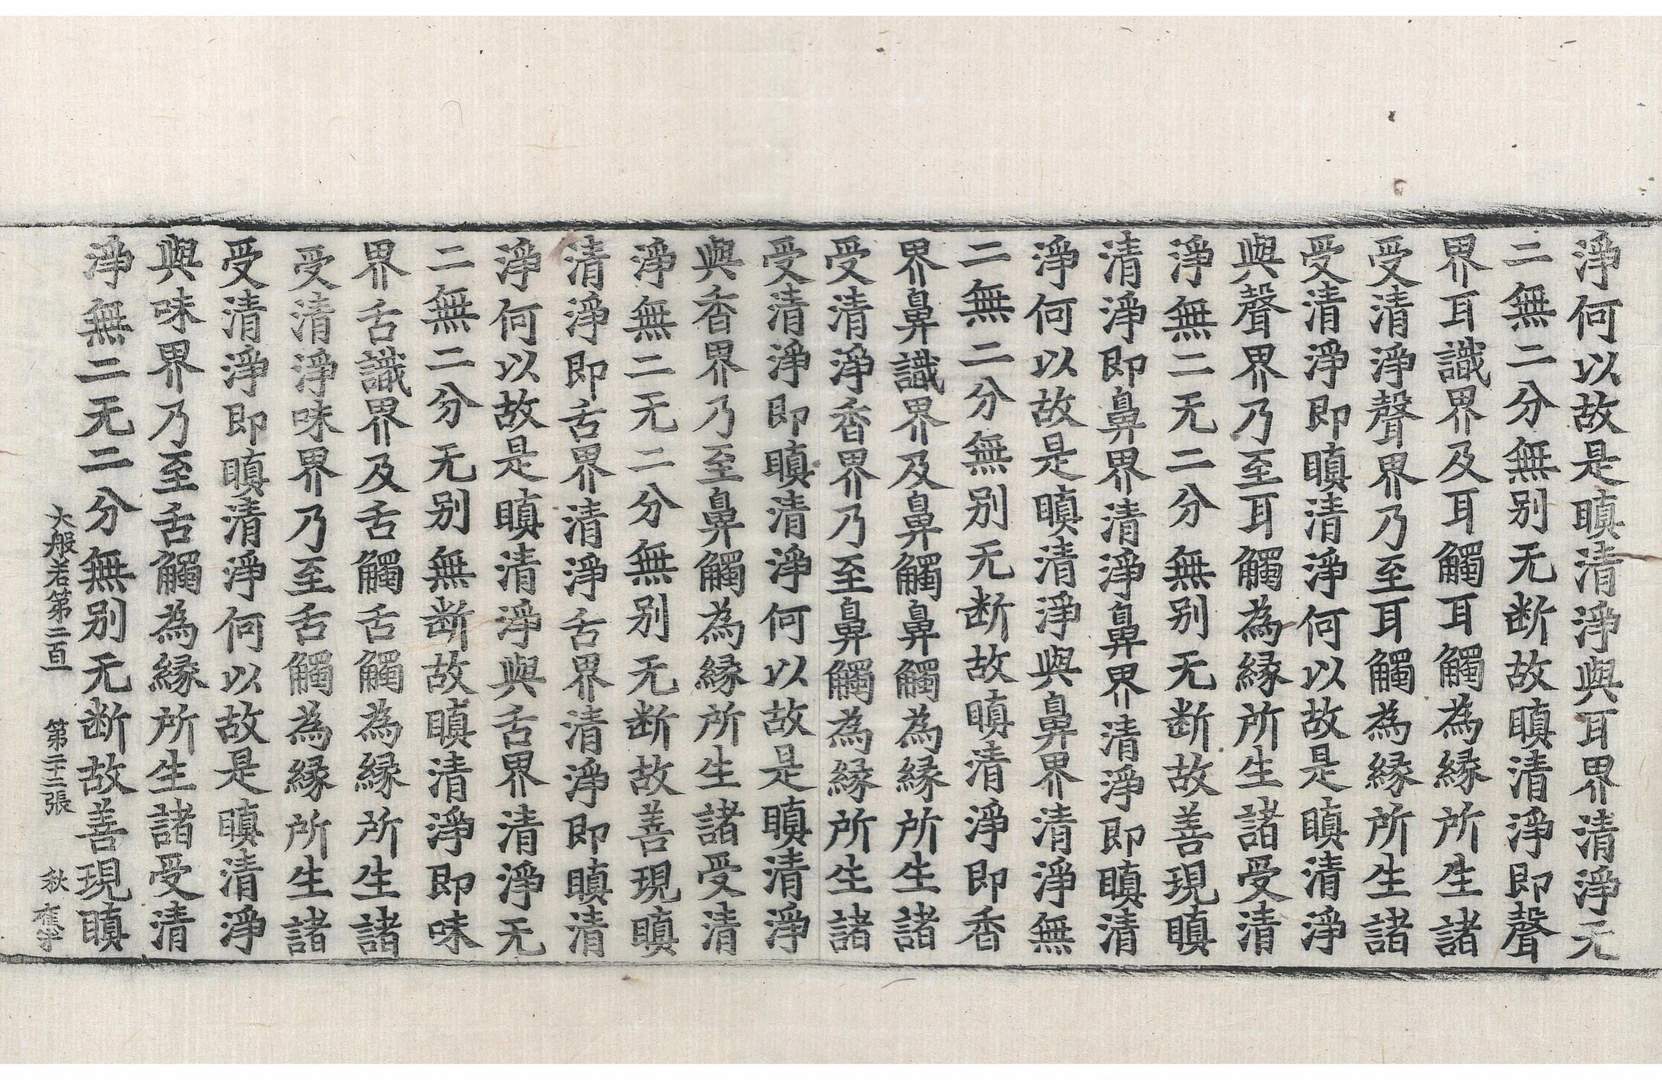 淨何以故是瞋清淨與耳界清淨无
二無二分無别无断故瞋清淨即聲
界耳識界及耳觸耳觸為緣所生諸
受清淨聲界乃至耳觸為緣所生諸
受清淨即瞋清淨何以故是瞋清淨
與聲界乃至耳觸為緣所生諸受清
淨無二无二分無别无断故善現瞋
清淨即鼻界清淨鼻界清淨即瞋清
淨何以故是瞋清淨與鼻界清淨無
二無二分無别无断故瞋清淨即香
界鼻識界及鼻觸鼻觸為緣所生諸
受清淨香界乃至鼻觸為緣所生諸
受清淨即瞋清淨何以故是瞋清淨
與香界乃至鼻觸為緣所生諸受清
淨無二无二分無别无断故善現瞋
清淨即舌界清淨舌界清淨即瞋清
淨何以故是瞋清淨與舌界清淨无
二無二分无别無断故瞋清淨即味
界舌識界及舌觸舌觸為緣所生諸
受清淨味界乃至舌觸為緣所生諸
受清淨即瞋清淨何以故是瞋清淨
與味界乃至舌觸為緣所生諸受清
淨無二无二分無别无断故善現瞋
大般若第二百 第二十二張 秋